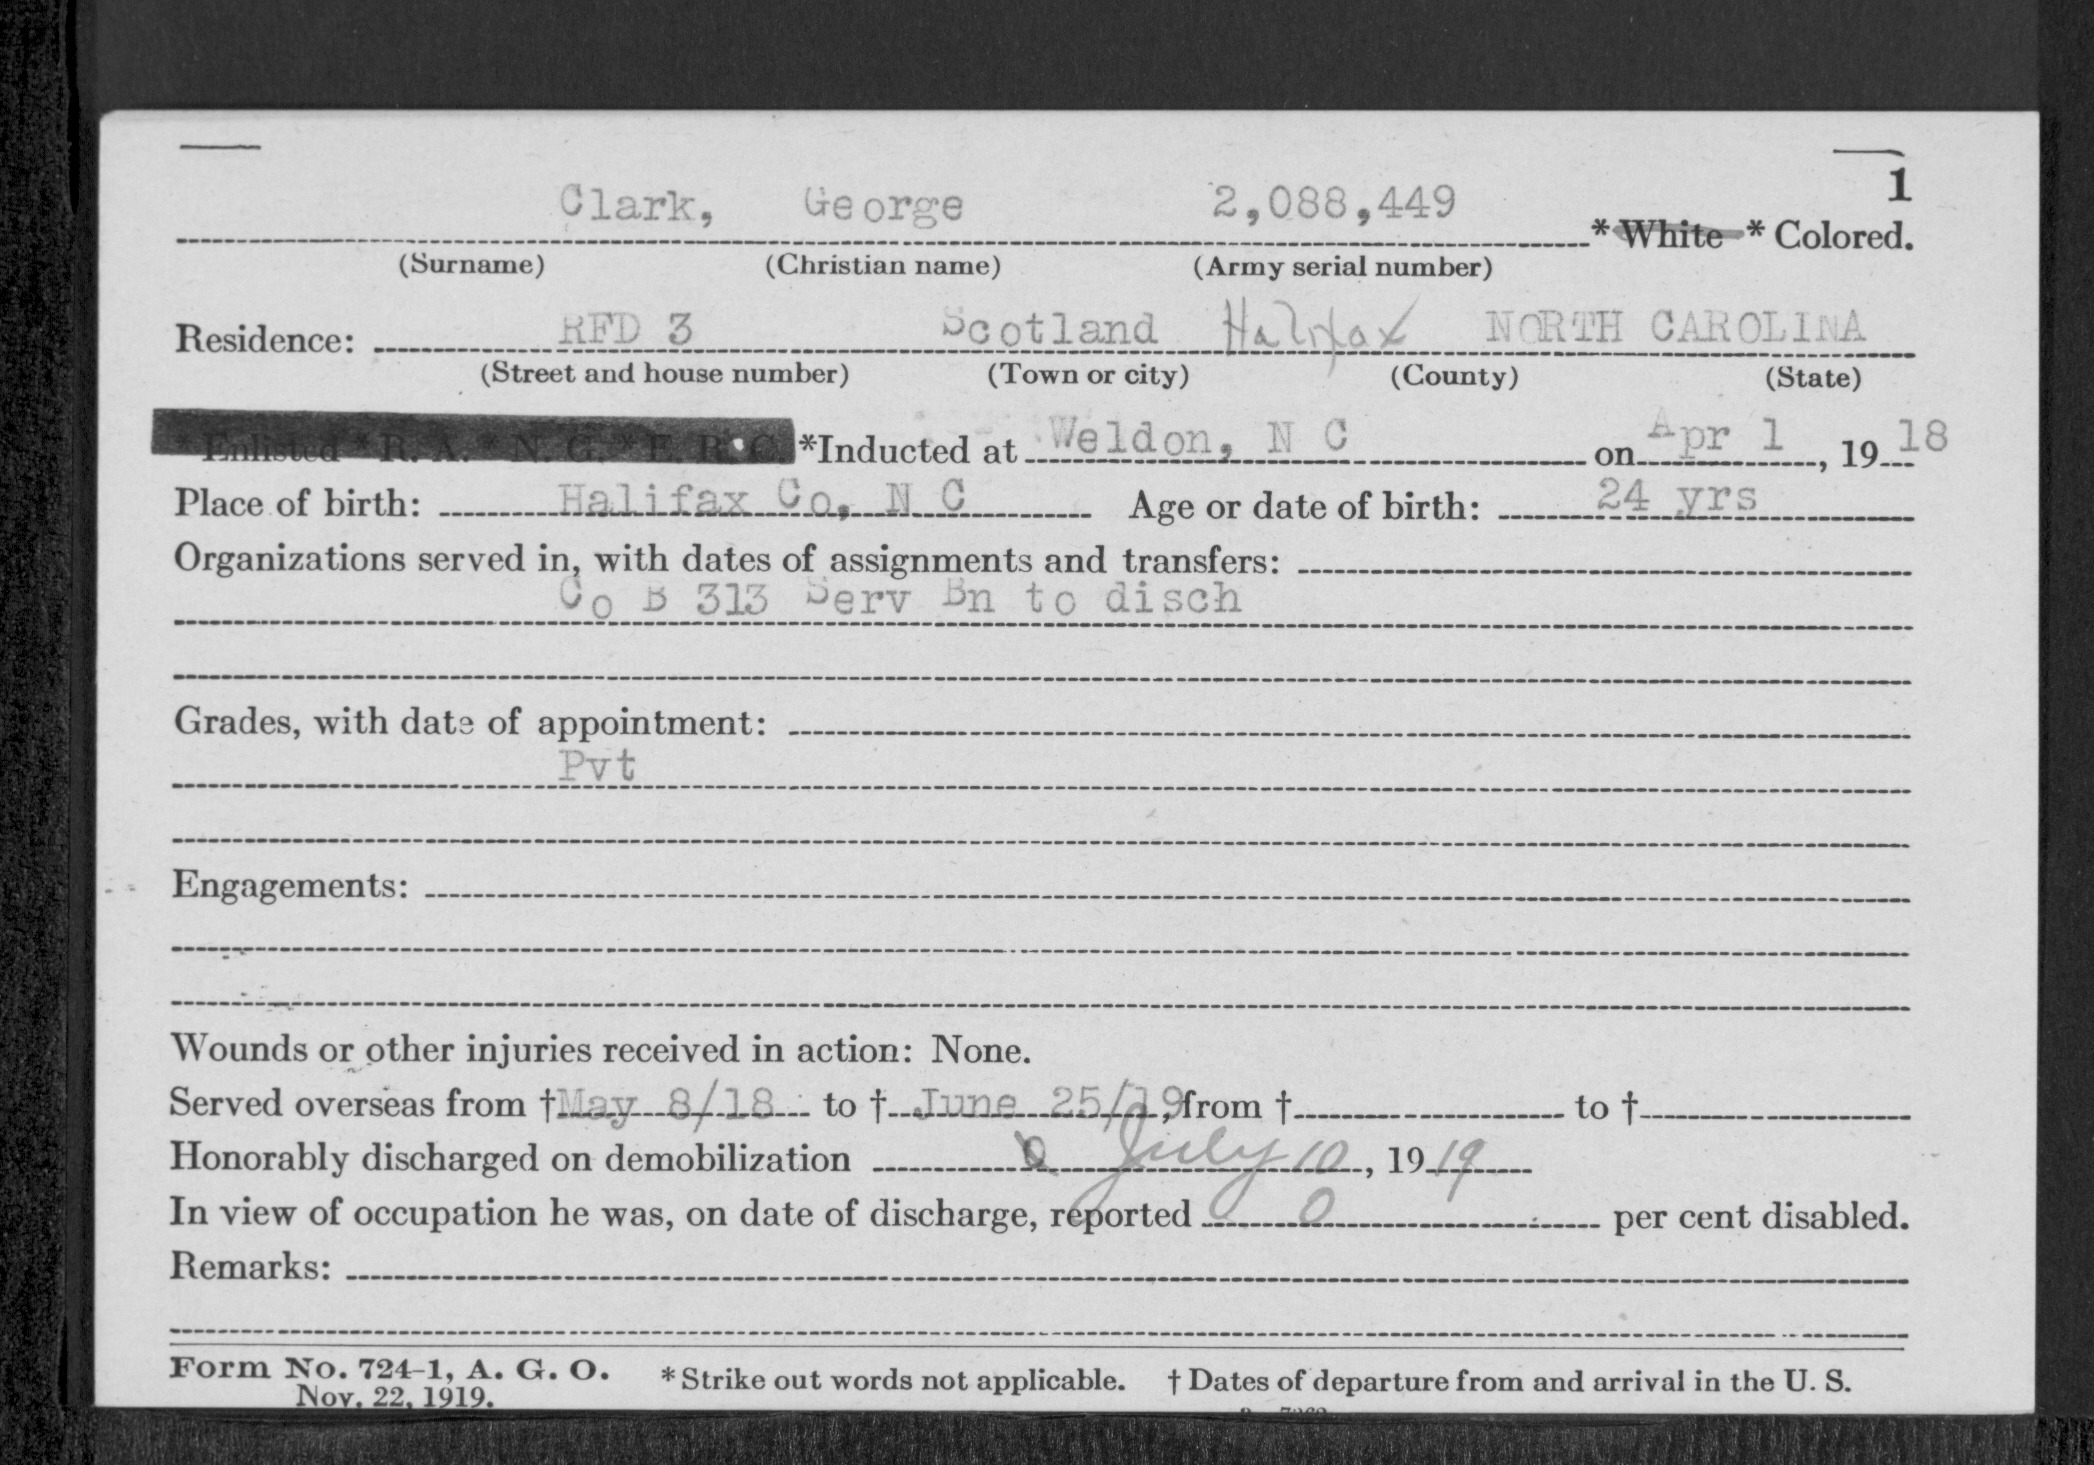 1
Clark, George 2,088,449 * White * Colored.
(Surname) (Christian name) (Army serial number)
Residence: RFD 3 Scotland Halifax NORTH CAROLINA
(Street and house number) (Town or city) (County) (State)
* Enlisted * R. A. * N. G. * E. R. C. *Inducted at Weldon, N C on Apr 1, 19 18
Place of birth: Halifax Co, N C Age or date of birth: 24 yrs
Organizations served in, with dates of assignments and transfers:
Co B 313 Serv Bn to disch
Grades, with date of appointment:
Pvt
Engagements:
Wounds or other injuries received in action: None.
Served overseas from † May 8/18 to † June 25/19, from † to †
Honorably discharged on demobilization July 10, 19 19
In view of occupation he was, on date of discharge, reported 0 per cent disabled.
Remarks:
Form No. 724-1, A. G. O. * Strike out words not applicable. † Dates of departure from and arrival in the U. S.
Nov. 22, 1919.